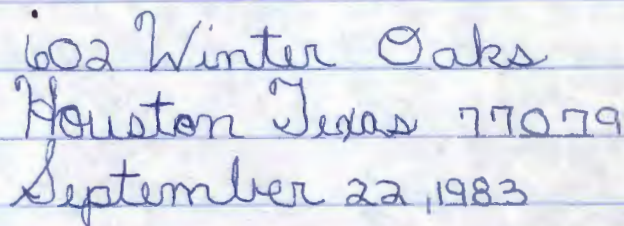 602 Winter Oaks
Houston Texas 77079
September 22, 1983